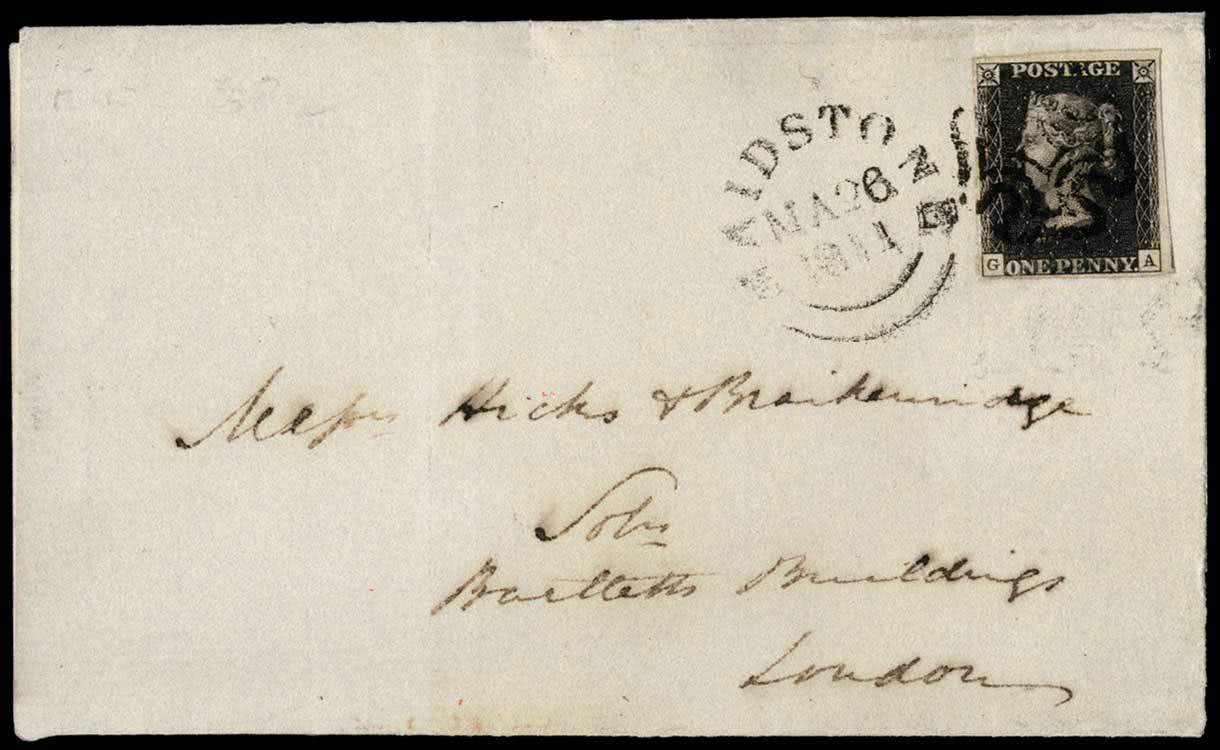 POSTAGE
MAIDSTONE
MA 26
1841
G ONE PENNY. A
Messrs Hicks & Braikenridge
Solrs
Bartletts Buildings
London